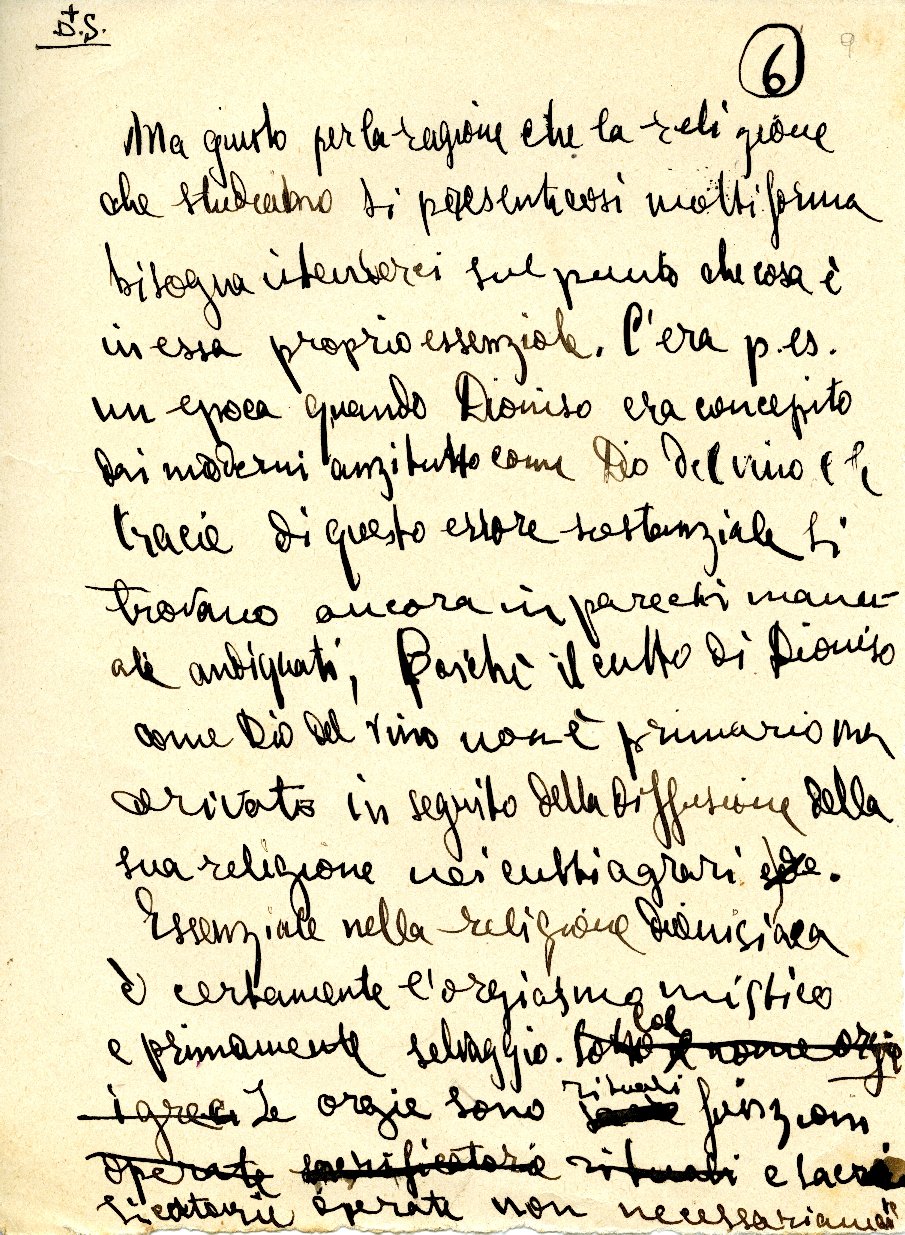 D.S.
6
9
Ma giusto per la ragione che la religione
che studiamo si presenta così moltiforma
bisogna intenderci sul punto che cosa è
in essa proprio essenziale. C'era p.es.
un epoca quando Dioniso era concepito
dai moderni anzitutto come Dio del vino e le
tracie di questo errore sostanziale si
trovano ancora in parechi manu-
ali antiquati, Poichè il culto di Dioniso
come Dio del vino non è primario ma
arivato in seguito della diffusione della
sua religione nei culti agrari.
Essenziale nella religione dionisiaca
è certamente l'orgiasmo mistico
e primamente selvaggio. Sotto col nome orgie
i greci Le orgie sono rituali funzioni
operate sacrificatorie rituali e sacri
ficatorie operate non necessariamen